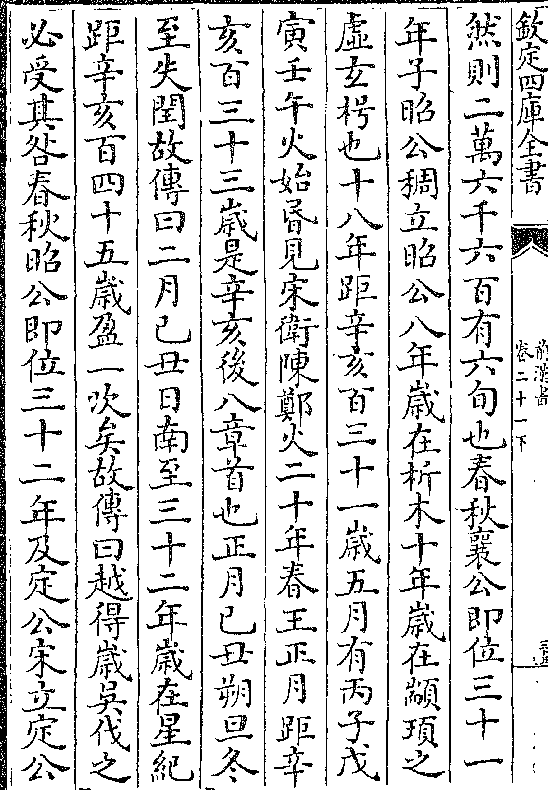 欽定四庫全書
前漢書
卷二十一下
然則二萬六千六百有六旬也春秋襄公即位三十一
年子昭公稠立昭公八年歲在析木十年歲在顓頊之
虛玄枵也十八年距辛亥百三十一歲五月有丙子戊
寅壬午火始昏見宋衛陳鄭火二十年春王正月距辛
亥百三十三歲是辛亥後八章首也正月己丑朔旦冬
至失閏故傳曰二月己丑日南至三十二年歲在星紀
距辛亥百四十五歲盈一次矣故傳曰越得歲吳伐之
必受其咎春秋昭公即位三十二年及定公宋立定公